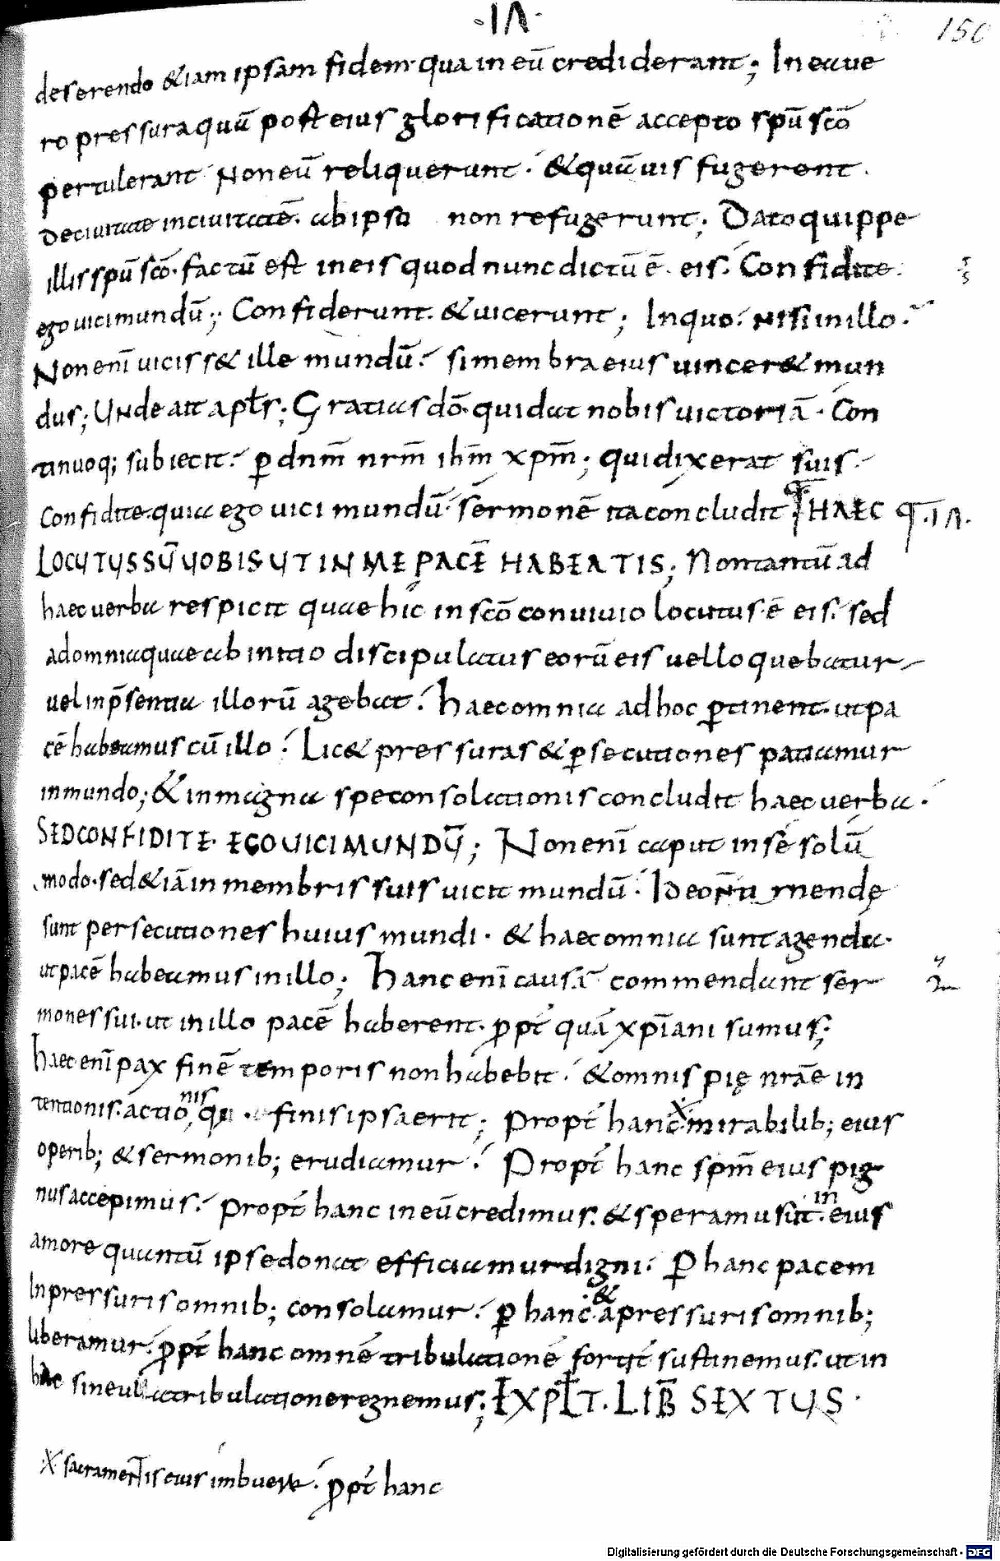 ·IΛ·
150
deserendo &iam ipsam fidem· qua in eū crediderant; In ea ue
ro pressura quā post eius glorificationē accepto spū scō
pertulerant Non eū reliquerunt· & quāuis fugerent·
De ciuitate in ciuitatē· ab ipso non refugerunt; Dato quippe
illis spū scō· factū est in eis quod nunc dictū ē· eis· Confidite·
ego uici mundū; Confiderunt· & uicerunt; In quo· nisi in illo·
Non enī uiciss& ille mundū· si membra eius uincer& mun
dus; Unde ait apłs; Gratias dō· qui dat nobis uictoriā· Con
tinuoq; subiecit· p dnm̄ nrm̄ ihm̄ xpm̄; qui dixerat suis·
Confidite· quia ego uici mundū· sermonē ita concludit HAEC
LOCUTUS SŪ UOBIS UT IN ME PACĒ HABEATIS; Non tantū ad
haec uerba respicit quae hic in scō conuiuio locutus ē eis· sed
ad omnia quae ab initio discipulatus eorū eis uel loquebatur
uel in p̄sentia illorū agebat· haec omnia ad hoc ptinent· ut pa
cē habeamus cū illo· Lic& pressuras & psecutiones patiamur
in mundo; & in magna spe consolationis concludit haec uerba·
SED CONFIDITE· EGO UICI MUNDŪ; Non enī caput in se solū
modo· sed & iā in membris suis uicit mundū·
sunt persecutiones huius mundi· & haec omnia sunt agenda·
ut pacē habeamus in illo; Hanc enī causā commendant ser
mones sui· ut in illo pacē haberent· ppt quā xpīani sumus;
haec enī pax finē temporis non habebit· & omnis pię nrāe in
tentionis· actionisq; finis ipsa erit; Propt hanc mirabilib; eius
operib; & sermonib; erudiamur· Propt hanc spm̄ eius pig
nus accepimus· Propt hanc in eū credimus· & speramus· ut in eius
amore quantū ipse donat efficiamur digni· P hanc pacem
In pressuris omnib; consolamur· p hanc & a pressuris omnib;
liberamur· ppt hanc omnē tribulationē fortit sustinemus· ut in
hac sine ulla tribulatione regnemus; EXPLT· LIB̄ SEXTUS·
·X· sacramentis eius imbuere· ppt hanc
Digitalisierung gefördert durch die Deutsche Forschungsgemeinschaft - DFG